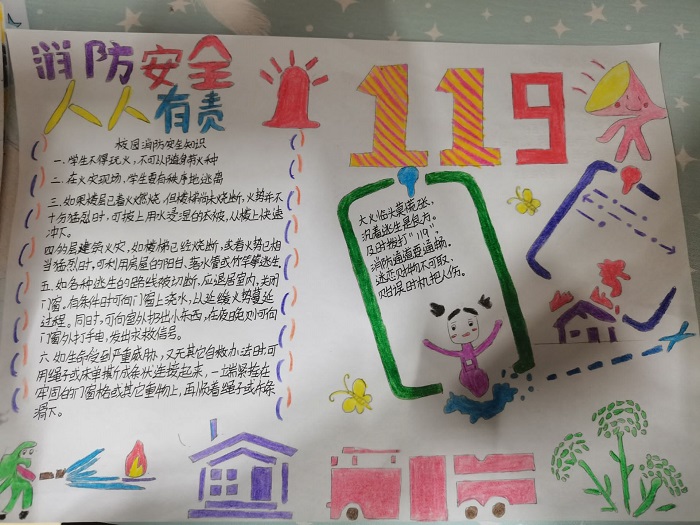 消防安全
人人有责
119
校园消防安全知识
一、学生不得玩火,不可以随身带火种
二、在火灾现场,学生要有秩序地逃离
三、如果楼层已着火燃烧,但楼梯尚未烧断,火势并不
十分猛烈时,可披上用水浸湿的衣被,从楼上快速
冲下。
四、多层建筑火灾,如楼梯已经烧断,或者火势已相
当猛烈时,可利用房屋的阳台、落水管或竹竿等逃生
五、如各种逃生的路线被切断,应退居室内,关闭
门窗。有条件时可向门窗上浇水,以延缓火势蔓延
过程。同时,可向室外扔出小东西,在夜晚则可向
门窗外打手电,发出求救信号。
六、如生命受到严重威胁,又无其它自救办法时,可
用绳子或床单撕成条状连接起来,一端紧拴在
牢固的门窗格或其它重物上,再顺着绳子或布条
滑下。
大火临头莫慌张,
沉着逃生是良方。
及时拨打“119”,
消防通道要通畅。
迷恋财物不可取,
贻误时机把人伤。